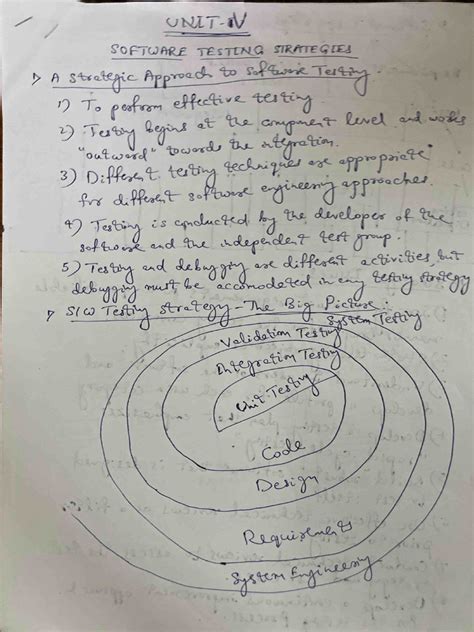 UNIT-IV
SOFTWARE TESTING STRATEGIES
A Strategic Approach to Software Testing.
1) To perform effective testing
2) Testing begins at the component level and works
"outward" towards the integration.
3) Different testing techniques are appropriate
for different software engineering approaches.
4) Testing is conducted by the developer of the
software and the independent test group.
5) Testing and debugging are different activities, but
debugging must be accomodated in any testing strategy
S/W Testing Strategy - The Big Picture:
System Testing
Validation Testing
Integration Testing
Unit Testing
Code
Design
Requirements
System Engineering